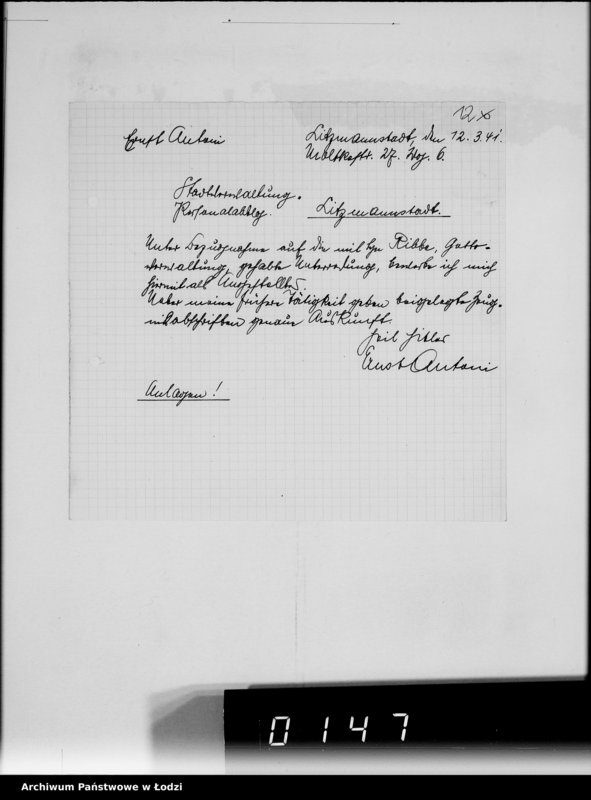 12x
Ernst Antoni
Litzmannstadt, den 12.3.41.
Moltkestr. 27. Wog. 6.
Stadtverwaltung.
Personalabtlg.
Litzmannstadt.
Unter Bezugnahme auf die mit Hr. Ribbe, Getto-
verwaltung, gehabte Unterredung, bewerbe ich mich
hiermit als Angestellter.
Ueber meine frühere Tätigkeit geben beigelegte Zeug-
nisabschriften genaue Auskunft.
Heil Hitler
Ernst Antoni
Anlagen!
0147
Archiwum Państwowe w Łodzi